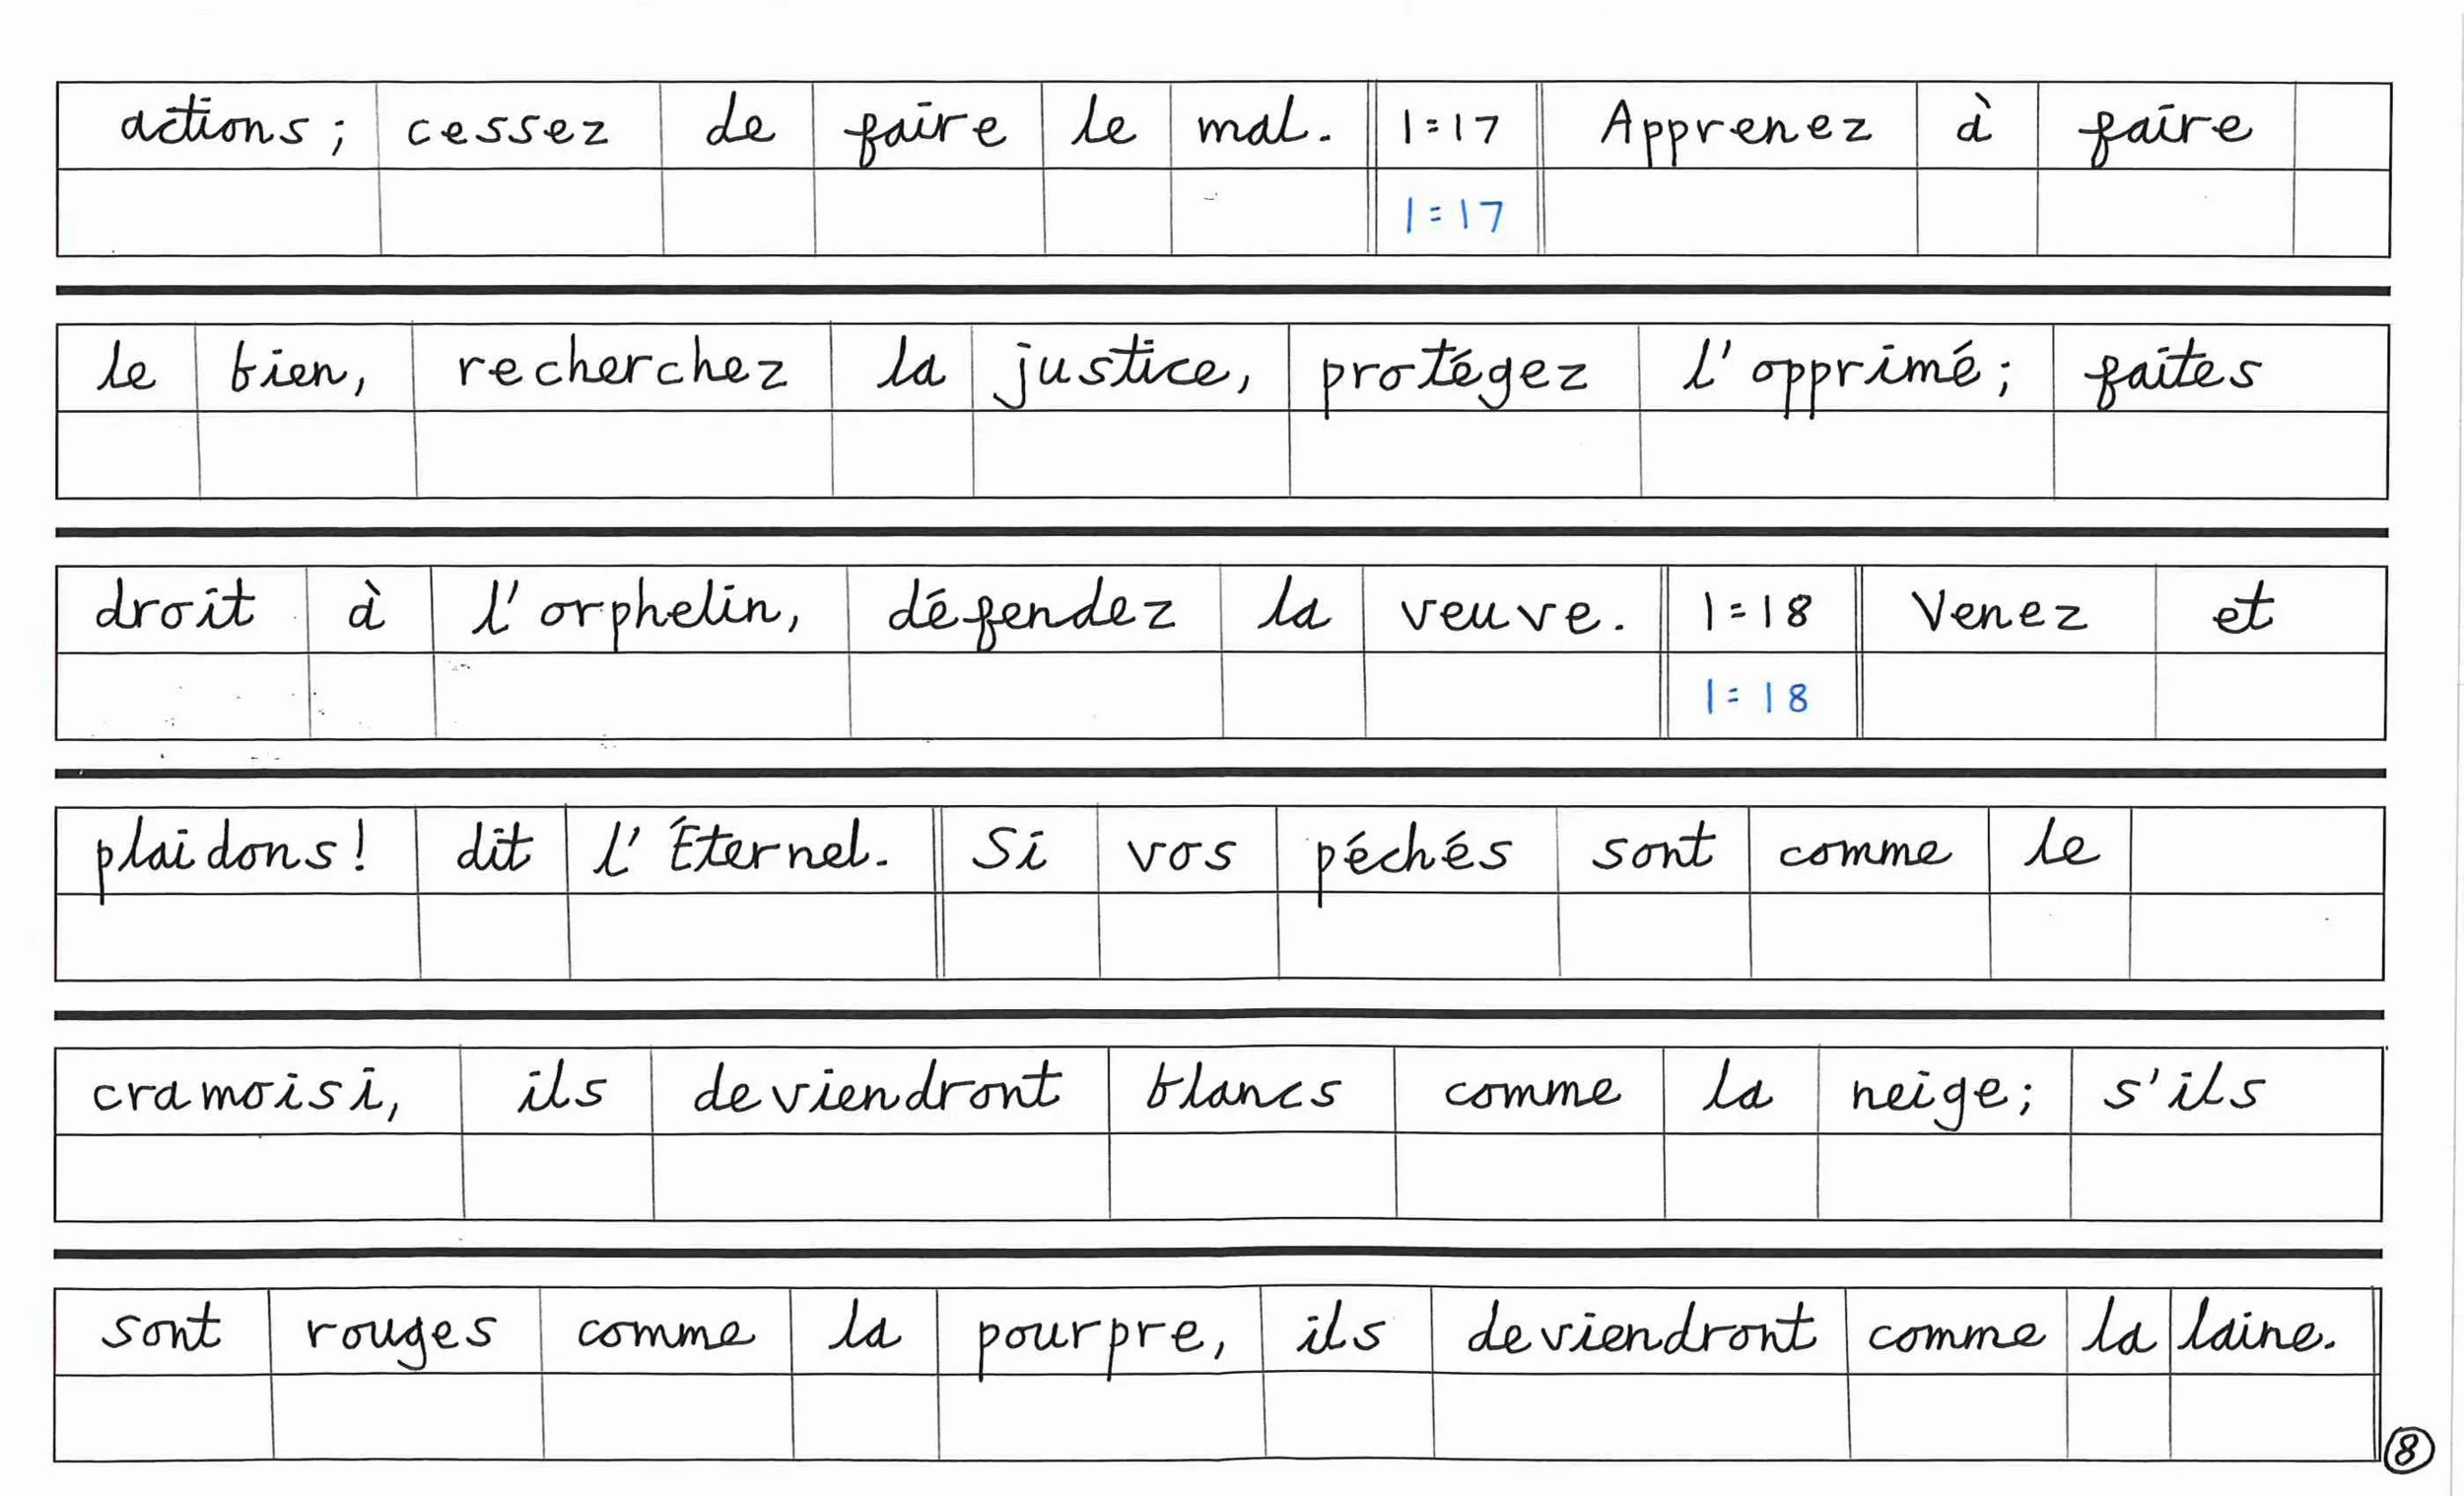 actions; cessez de faire le mal. 1:17 Apprenez à faire
1:17
le bien, recherchez la justice, protégez l'opprimé; faites
droit à l'orphelin, défendez la veuve. 1:18 Venez et
1:18
plaidons! dit l'Éternel. Si vos péchés sont comme le
cramoisi, ils deviendront blancs comme la neige; s'ils
sont rouges comme la pourpre, ils deviendront comme la laine.
8